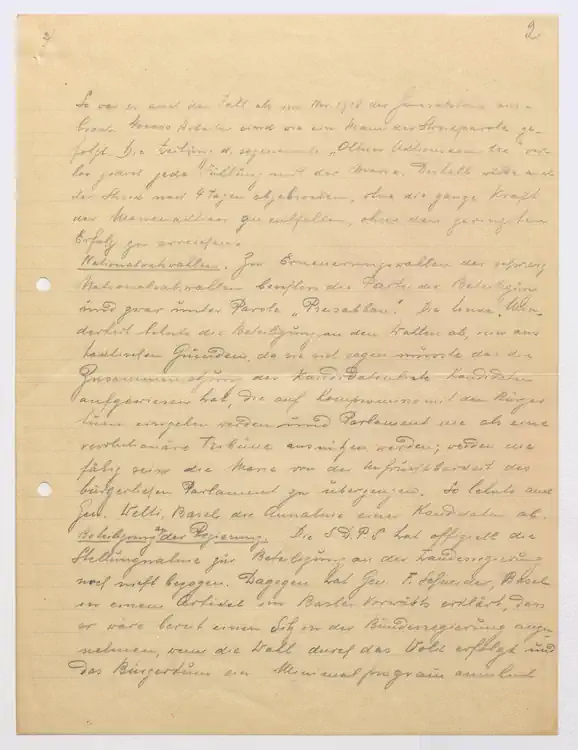 2
2
So war es auch der Fall als im Nov. 1918 der Generalstreik aus-
brach. Arbeiter sind wie ein Mann der Streikparole ge-
folgt. Die Leitung d. sogenannte „Oltner Aktionskomitee" ver-
lor jedoch jede Fühlung mit der Masse. Deshalb wurde auch
der Streik nach 4 Tagen abgebrochen, ohne die ganze Kraft
der Massenaktion zu entfalten, ohne den geringsten
Erfolg zu erreichen.
Nationalratswahlen. Zur Erneuerungswahlen der schweiz.
Nationalratswahlen die Partei die Beteiligung
und zwar unter Parole „Proporz". Die Linke Min-
derheit lehnte die Beteiligung an den Wahlen ab, nur aus
taktischen Gründen, da sie sich sagen müsste das die
Zusammensetzung der Kandidatenliste Kandidaten
aufgewiesen hat, die auf Kompromisse mit den Bürger
tum eingehen werden und Parlament nie als eine
revolutionäre Tribüne ausnützen werden; werden nie
fähig sein die Masse von der Unfruchtbarkeit des
bürgerlichen Parlament zu überzeugen. So lehnte auch
Gen. Welti, Basel die Annahme einer Kandidatur ab.
Beteiligung an der Regierung. Die S.D.P.S hat offiziell die
Stellungnahme zur Beteiligung an der Landesregierung
noch nicht bezogen. Dagegen hat Gen. F. Schneider, Basel
in einem Artikel im Basler Vorwärts erklärt, dass
er wäre bereit einen Sitz in der Bundesregierung anzu-
nehmen, wenn die Wahl durch das Volk erfolgt und
das Bürgertum ein Minimalprogram annehmt